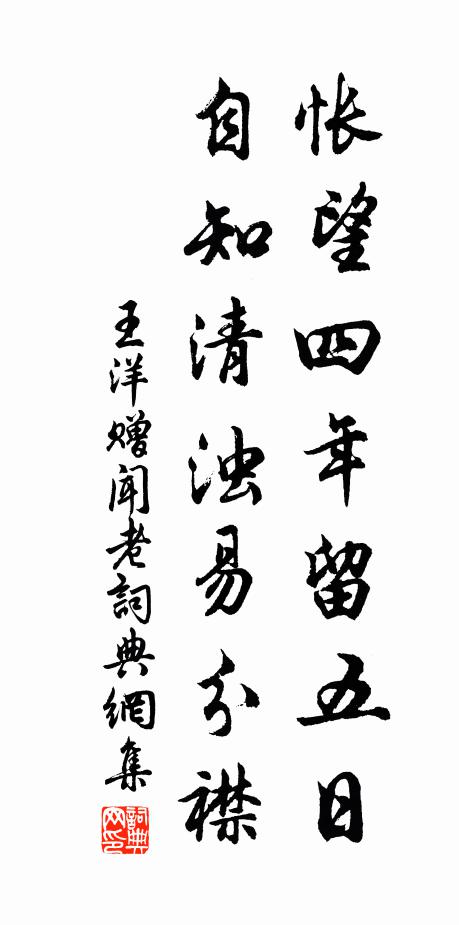 怅望四年留五日
自知清浊易分襟
王洋赠闻老詞典網集
詞典网印